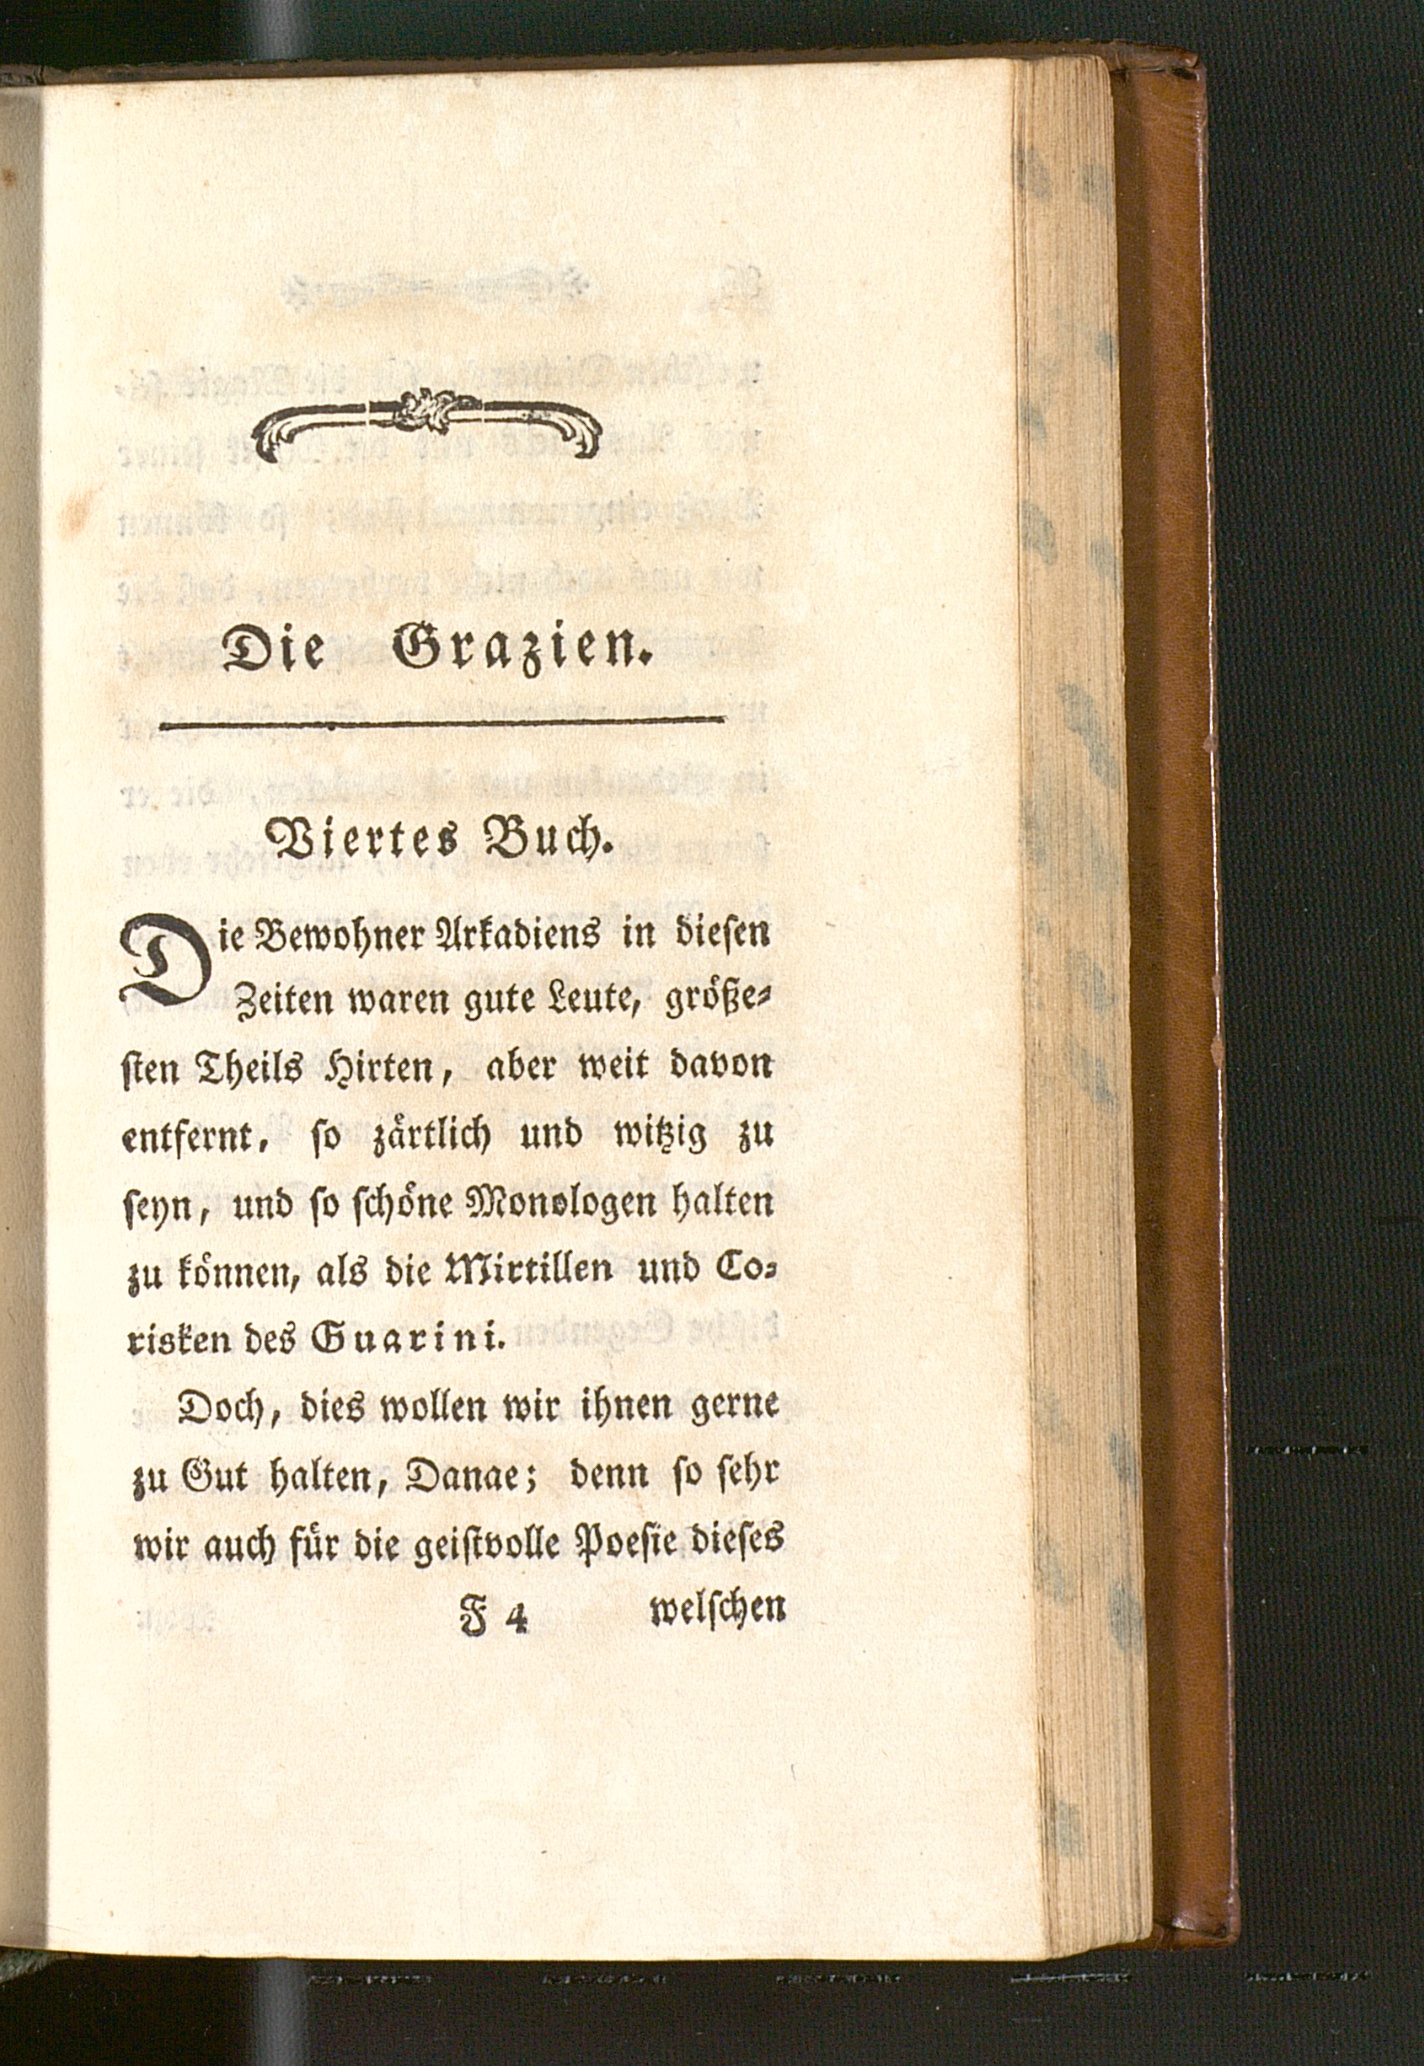 Die Grazien.
Viertes Buch.
Die Bewohner Arkadiens in dieſen
Zeiten waren gute Leute, größe⸗
ſten Theils Hirten, aber weit davon
entfernt, ſo zaͤrtlich und witzig zu
ſeyn, und ſo ſchoͤne Monologen halten
zu koͤnnen, als die Mirtillen und Co⸗
risken des Guarini.
Doch, dies wollen wir ihnen gerne
zu Gut halten, Danae; denn ſo ſehr
wir auch fuͤr die geiſtvolle Poeſie dieſes
F 4 welſchen